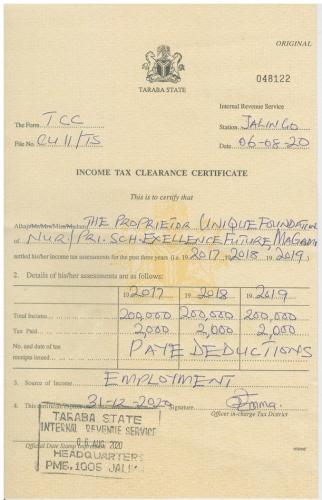 ORIGINAL
TARABA STATE
048122
Internal Revenue Service
The Form TCC
Station JALINGO
File No. CU 11/TS
Date 06-08-20
INCOME TAX CLEARANCE CERTIFICATE
This is to certify that
Alhaji/Mr/Mrs/Miss/Madam THE PROPRIETOR UNIQUE FOUNDATION
of NUR/PRI. SCH. EXELLENCE FUTURE, MAGAMI
settled his/her income tax assessments for the post three years (i.e. 19 2017, 19 2018 19 2019)
2. Details of his/her assessments are as follows:
19 2017 19 2018 19 2019
Total Income 200,000 200,000 200,000
Tax Paid 2,000 2,000 2,000
No. and date of tax
receipts issued PAYE DEDUCTIONS
3. Source of Income: EMPLOYMENT
4. This certificate 31-12-2020 Signature
Officer in-charge Tax District
TARABA STATE
INTERNAL REVENUE SERVICE
06 AUG 2020
Official Date Stamp
HEADQUARTERS
PMB. 1005